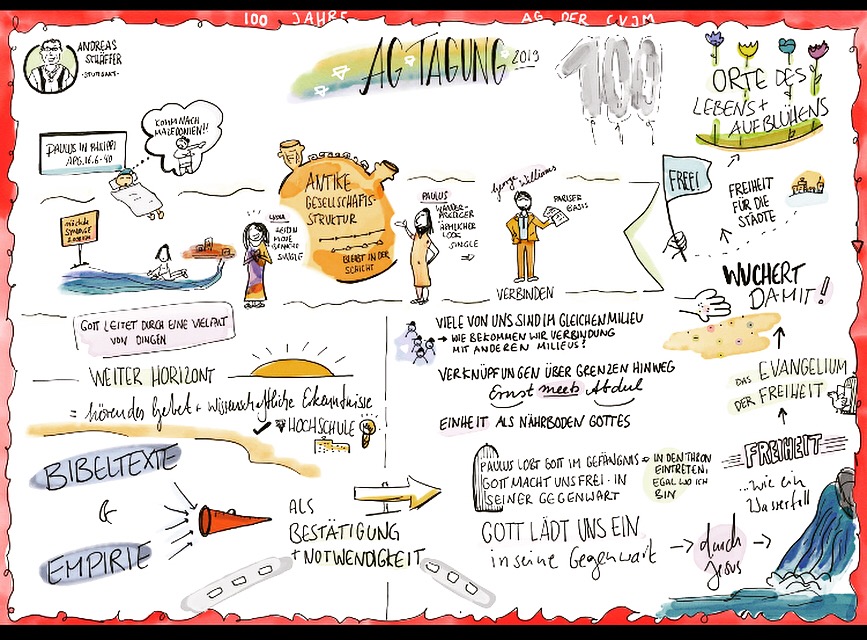 100 JAHRE AG DER CVJM
ANDREAS
SCHÄFFER
-STUTTGART-
AG TAGUNG 2019
100
ORTE DES
LEBENS +
AUFBLÜHENS
PAULUS IN PHILIPPI
APG. 16, 6-40
KOMM NACH
MAZEDONIEN!!
nächste
SYNAGOGE
LYDIA
HEIDIN
MODE
SINGLE
ANTIKE
GESELLSCHAFTS-
STRUKTUR
BLEIBT IN DER
SCHICHT
PAULUS
WANDER-
PREDIGER
ÄRMLICHER
LOOK
SINGLE
George Williams
PARISER
BASIS
VERBINDEN
FREE!
FREIHEIT
FÜR DIE
STÄDTE
WUCHERT
DAMIT!
GOTT LEITET DURCH EINE VIELFALT
VON DINGEN
WEITER HORIZONT
= hörendes Gebet + wissenschaftliche Erkenntnisse
HOCHSCHULE
BIBELTEXTE
&
EMPIRIE
ALS
BESTÄTIGUNG
+ NOTWENDIGKEIT
VIELE VON UNS SIND IM GLEICHEN MILIEU
→ WIE BEKOMMEN WIR VERBINDUNG
MIT ANDEREN MILIEUS?
VERKNÜPFUNGEN ÜBER GRENZEN HINWEG
Ernst meets Abdul
EINHEIT ALS NÄHRBODEN GOTTES
PAULUS LOBT GOTT IM GEFÄNGNIS
GOTT MACHT UNS FREI · IN
SEINER GEGENWART
IN DEN THRON
EINTRETEN,
EGAL WO ICH
BIN
GOTT LÄDT UNS EIN
in seine Gegenwart
→ durch →
Jesus
DAS EVANGELIUM
DER FREIHEIT
FREIHEIT
...wie ein
Wasserfall